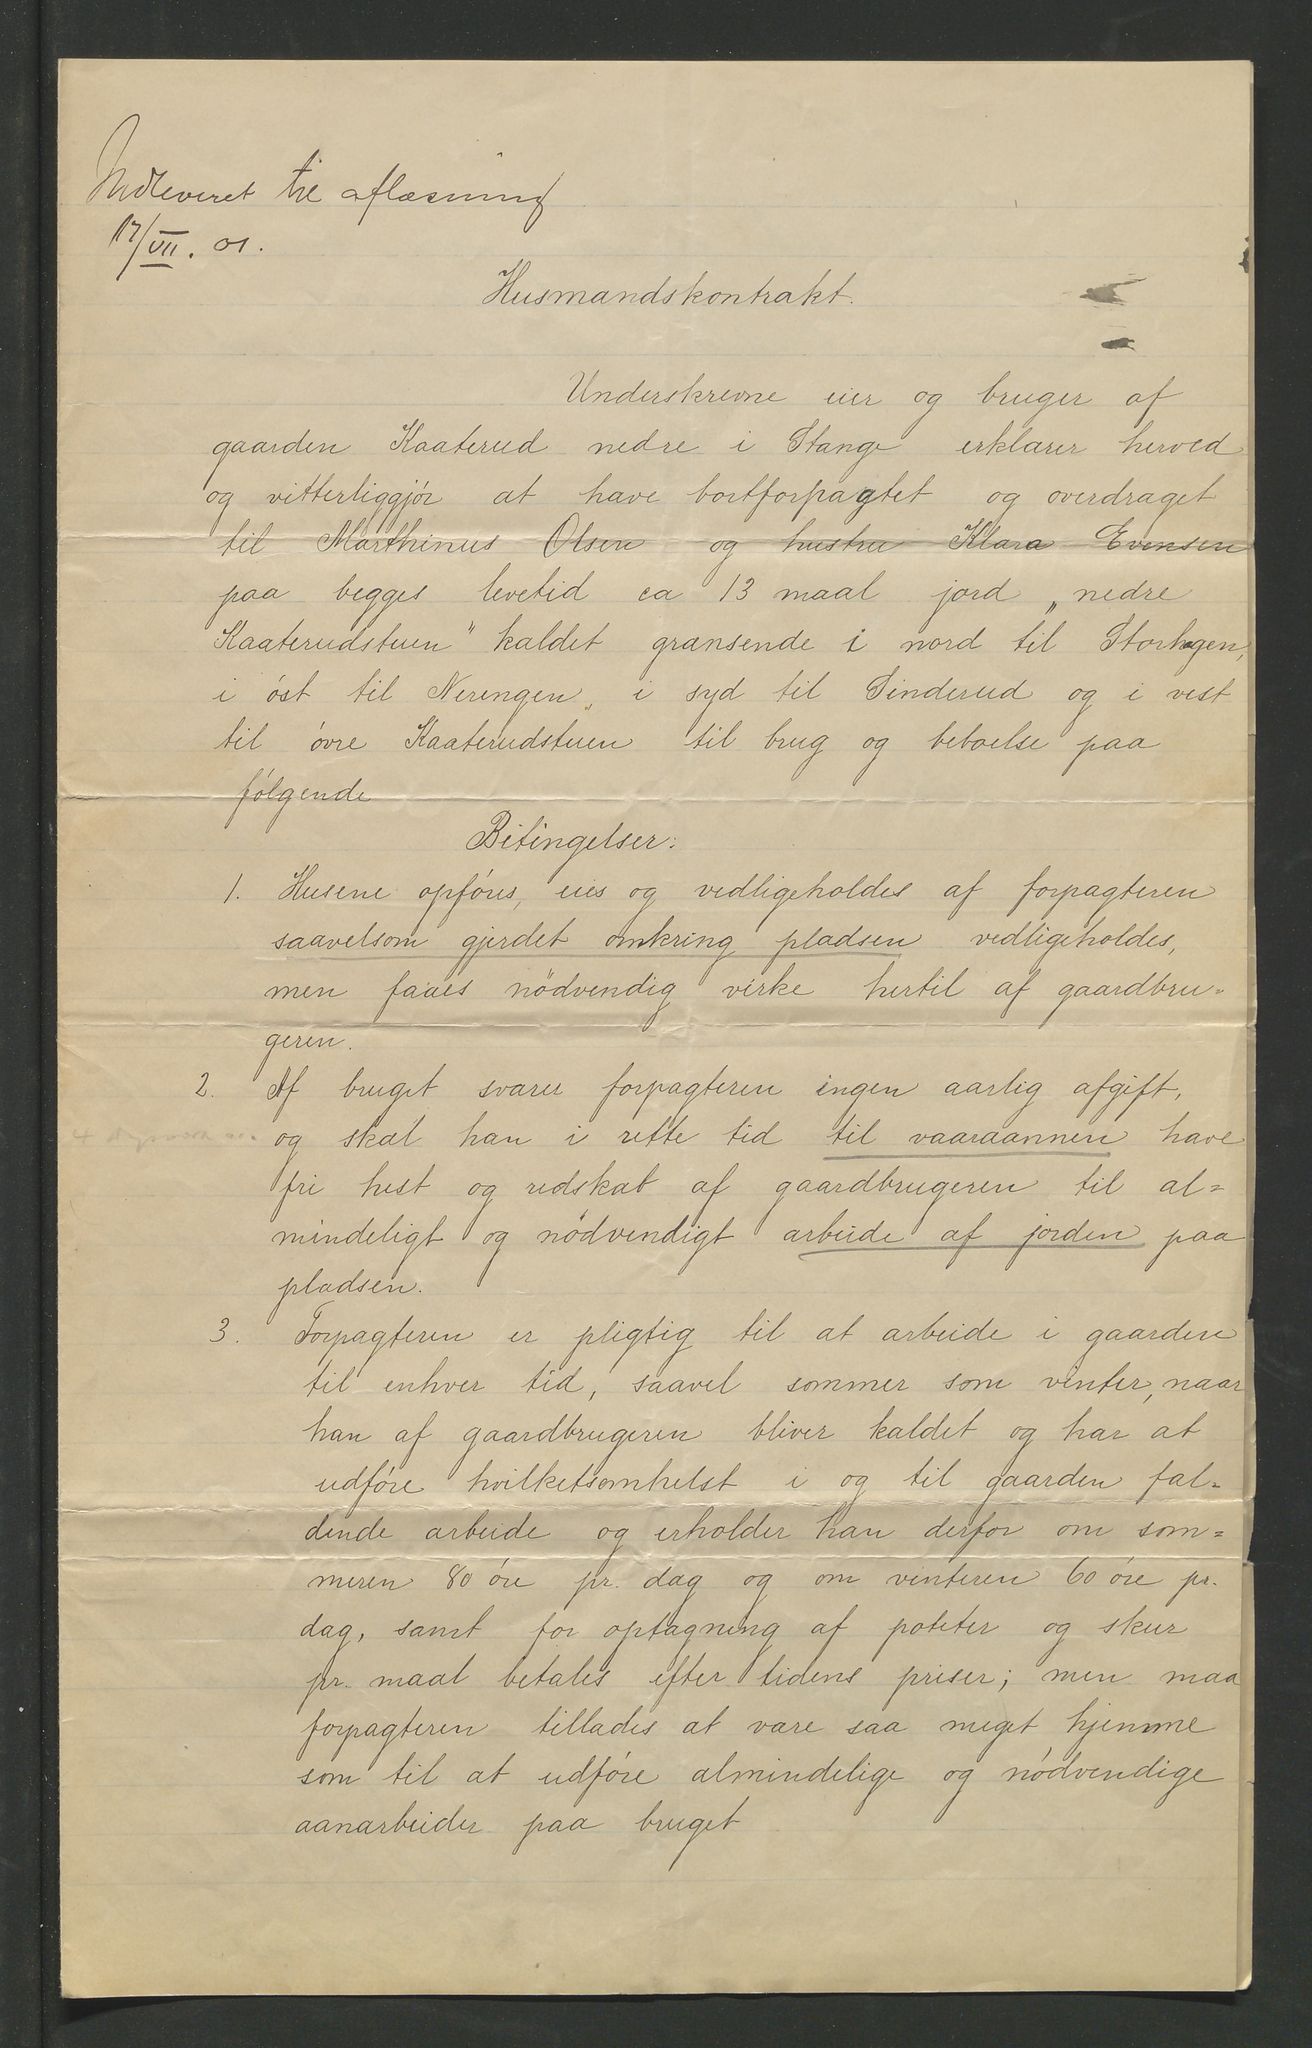 Indleveret til aflæsning
17/VII. 01.
Husmandskontrakt.
Underskrevne eier og bruger af
gaarden Kaaterud nedre i Stange erklærer herved
og vitterliggjør at have bortforpagtet og overdraget
til Marthinus Olsen og hustru Klara Evensen
paa begges levetid ca 13 maal jord „nedre
Kaaterudstuen" kaldet grænsende i nord til Storhagen,
i øst til Nerengen, i syd til Sinderud og i vest
til øvre Kaaterudstuen til brug og beboelse paa
følgende
Betingelser:
1. Husene opføres, eies og vedligeholdes af forpagteren
saavelsom gjerdet omkring pladsen vedligeholdes,
men faaes nødvendig virke hertil af gaardbru-
geren.
2. Af bruget svarer forpagteren ingen aarlig afgift,
og skal han i rette tid til vaaraannen have
fri hest og redskab af gaardbrugeren til al-
mindeligt og nødvendigt arbeide af jorden paa
pladsen.
3. Forpagteren er pligtig til at arbeide i gaarden
til enhver tid, saavel sommer som vinter, naar
han af gaardbrugeren bliver kaldet og har at
udføre hvilketsomhelst i og til gaarden fal-
dende arbeide og erholder han derfor om som-
meren 80 øre pr. dag og om vinteren 60 øre pr.
dag, samt for optagning af poteter og skur
pr. maal betales efter tidens priser; men maa
forpagteren tillades at være saa meget hjemme
som til at udføre almindelige og nødvendige
aanarbeider paa bruget